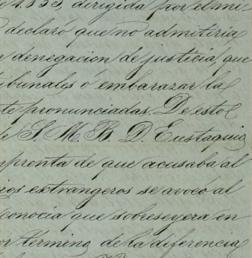 1855, dirigida por el mi
declaró que no admitiria
denegacion de justicia, que
bunales ó embarazar la
te pronunciadas. De esto
S. M. B. D. Eustaquio
prenta de que acusaba al
ios extrangeros se avocó al
conocia que sobreseyera en
término de la diferencia